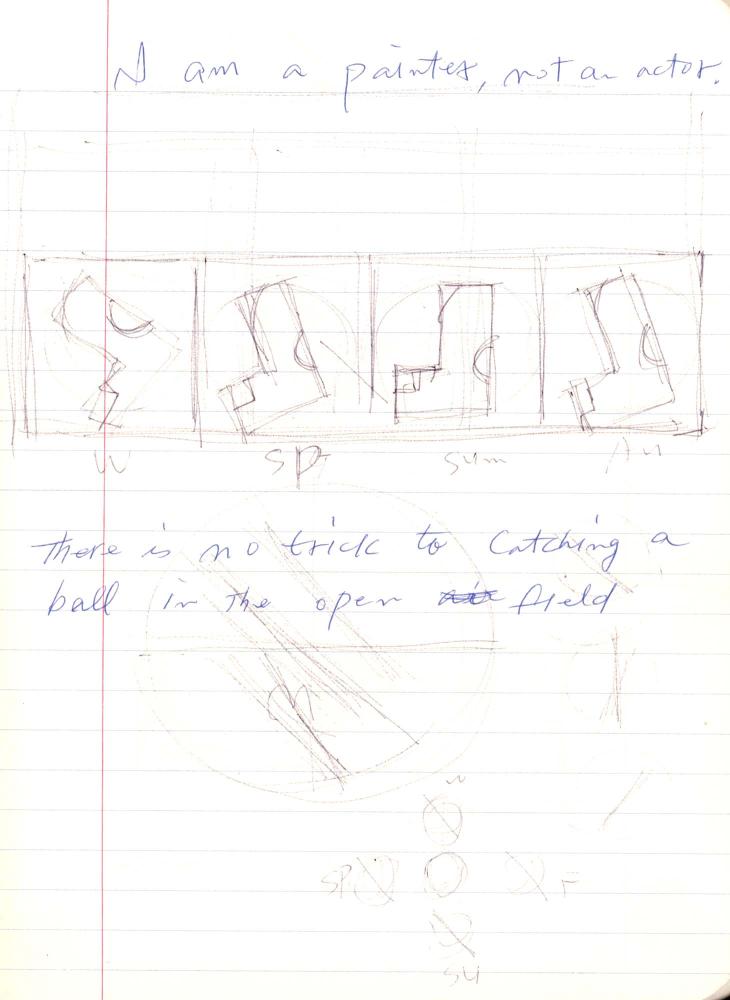 I am a painter, not an actor.
W Sp Sum Au
There is no trick to Catching a
ball in the open field
W
SP F
SU